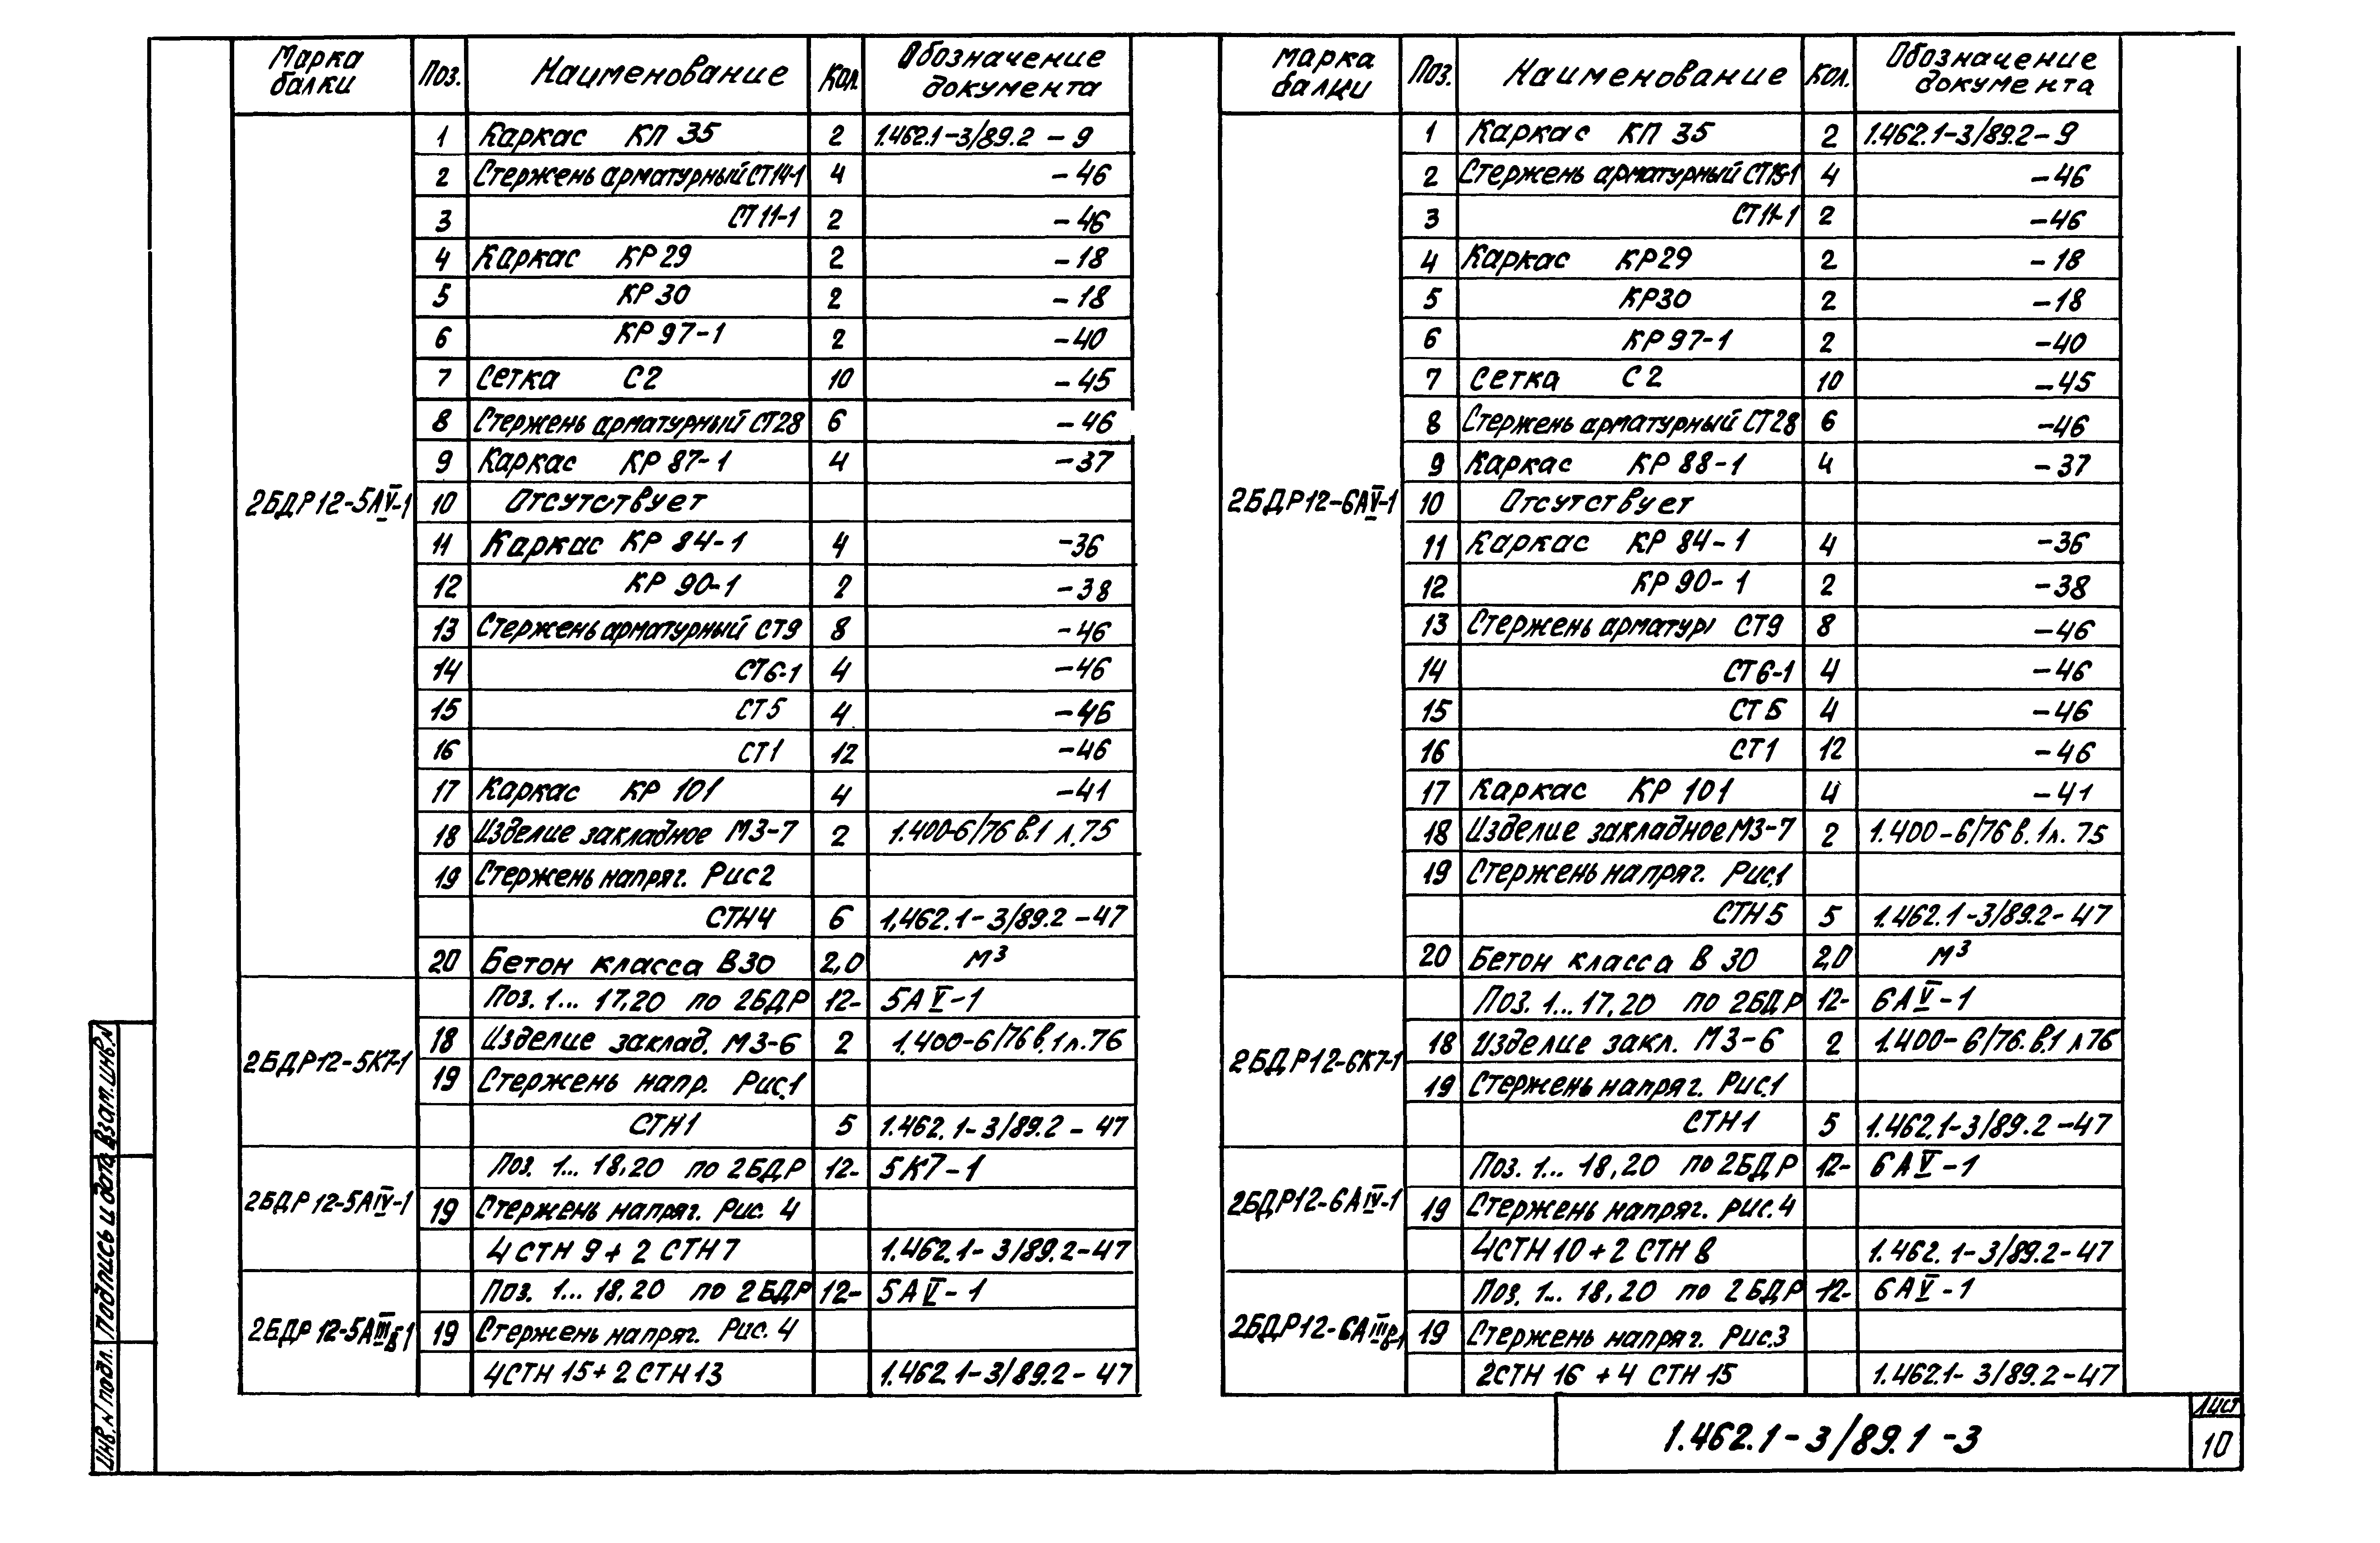 Марка балки Поз. Наименование Кол. Обозначение документа
2БДР12-5АV-1
1 Каркас КП 35 2 1.462.1-3/89.2 - 9
2 Стержень арматурный СТ14-1 4 -46
3 СТ11-1 2 -46
4 Каркас КР29 2 -18
5 КР30 2 -18
6 КР97-1 2 -40
7 Сетка С2 10 -45
8 Стержень арматурный СТ28 6 -46
9 Каркас КР 87-1 4 -37
10 Отсутствует
11 Каркас КР 84-1 4 -36
12 КР 90-1 2 -38
13 Стержень арматурный СТ9 8 -46
14 СТ6-1 4 -46
15 СТ5 4 -46
16 СТ1 12 -46
17 Каркас КР 101 4 -41
18 Изделие закладное МЗ-7 2 1.400-6/76 в.1 л.75
19 Стержень напряг. Рис2
СТН4 6 1.462.1-3/89.2-47
20 Бетон класса В30 2,0 м³
2БДР12-5К7-1
Поз. 1... 17,20 по 2БДР 12- 5АV-1
18 Изделие заклад. МЗ-6 2 1.400-6/76 в.1 л.76
19 Стержень напр. Рис.1
СТН1 5 1.462.1-3/89.2 - 47
2БДР12-5АIV-1
Поз. 1... 18,20 по 2БДР 12- 5К7-1
19 Стержень напряг. Рис. 4
4 СТН 9 + 2 СТН7 1.462.1-3/89.2-47
2БДР12-5АIIIв-1
Поз. 1... 18,20 по 2БДР 12- 5АV-1
19 Стержень напряг. Рис. 4
4СТН 15+2 СТН 13 1.462.1-3/89.2-47
Марка балки Поз. Наименование Кол. Обозначение документа
2БДР12-6АV-1
1 Каркас КП 35 2 1.462.1-3/89.2-9
2 Стержень арматурный СТ15-1 4 -46
3 СТ11-1 2 -46
4 Каркас КР29 2 -18
5 КР30 2 -18
6 КР97-1 2 -40
7 Сетка С2 10 -45
8 Стержень арматурный СТ28 6 -46
9 Каркас КР 88-1 4 -37
10 Отсутствует
11 Каркас КР 84-1 4 -36
12 КР 90-1 2 -38
13 Стержень арматур СТ9 8 -46
14 СТ6-1 4 -46
15 СТ5 4 -46
16 СТ1 12 -46
17 Каркас КР 101 4 -41
18 Изделие закладное МЗ-7 2 1.400-6/76 в.1л.75
19 Стержень напряг. Рис.1
СТН5 5 1.462.1-3/89.2-47
20 Бетон класса В 30 2,0 м³
2БДР12-6К7-1
Поз. 1... 17,20 по 2БДР 12- 6АV-1
18 Изделие закл. МЗ-6 2 1.400-6/76.в.1 л76
19 Стержень напряг. Рис.1
СТН1 5 1.462.1-3/89.2-47
2БДР12-6АIV-1
Поз. 1... 18,20 по 2БДР 12- 6АV-1
19 Стержень напряг. рис.4
4СТН 10 + 2 СТН 8 1.462.1-3/89.2-47
2БДР12-6АIIIв-1
Поз. 1... 18,20 по 2БДР 12- 6АV-1
19 Стержень напряг. Рис.3
2СТН 16 + 4 СТН 15 1.462.1-3/89.2-47
Инв.N подл. Подпись и дата Взам.инв.N
1.462.1-3/89.1-3
Лист
10